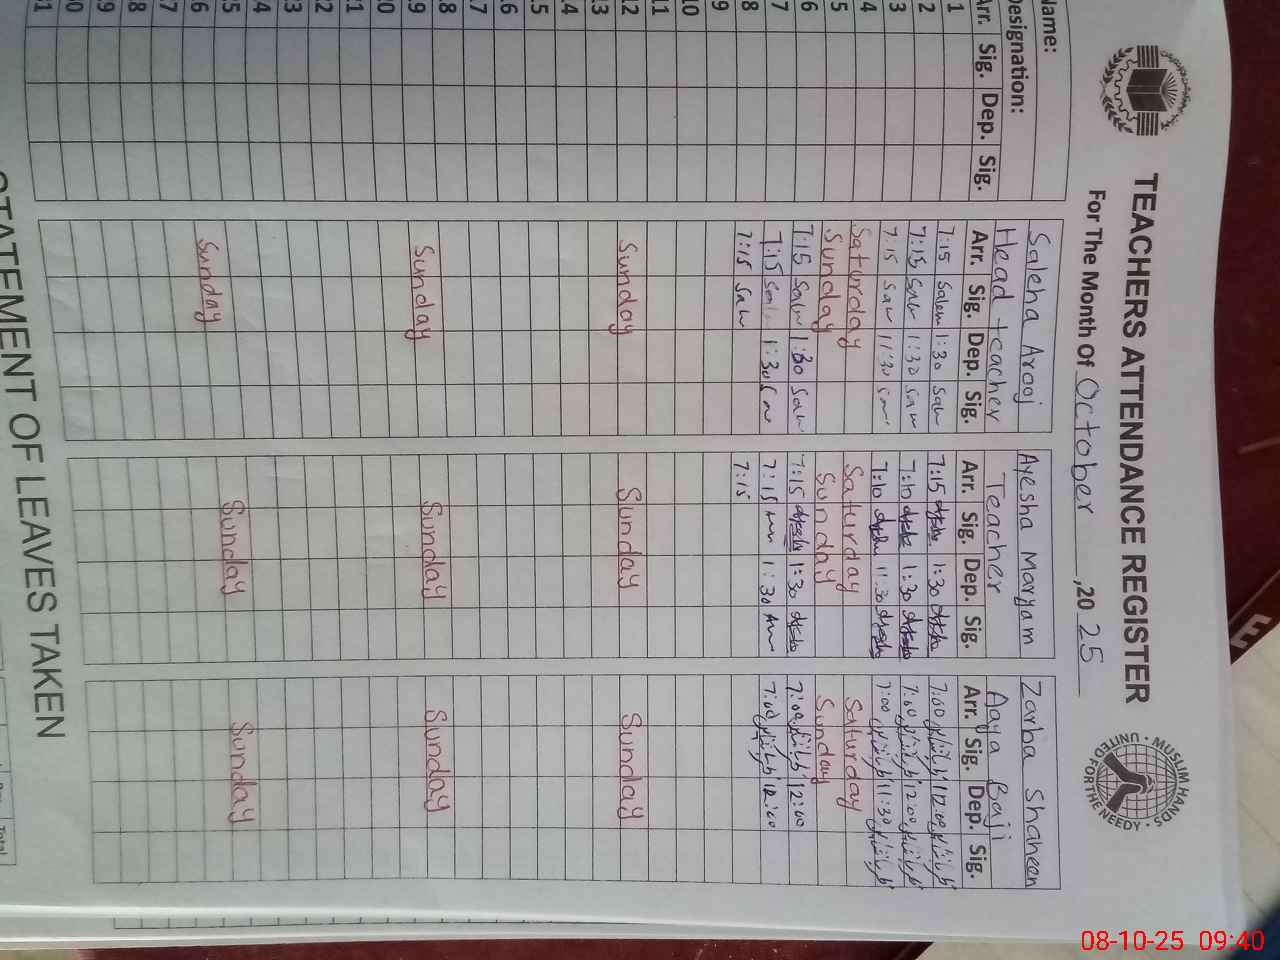 TEACHERS ATTENDANCE REGISTER
For The Month Of October, 20 25
MUSLIM HANDS • UNITED FOR THE NEEDY •
Name: Saleha Arooj Ayesha Maryam Zarba Shaheen
Designation: Head teacher Teacher Aaya Baji
Arr. Sig. Dep. Sig. Arr. Sig. Dep. Sig. Arr. Sig. Dep. Sig. Arr. Sig. Dep. Sig.
1 7:15 1:30 7:15 1:30 7:00 12:00
2 7:15 1:30 7:10 1:30 7:00 12:00
3 7:15 11:30 7:10 11:30 7:00 11:30
4 Saturday Saturday Saturday
5 Sunday Sunday Sunday
6 7:15 1:30 7:15 1:30 7:00 12:00
7 7:15 1:30 7:15 1:30 7:00 12:00
8 7:15 7:15
9
10
11
12 Sunday Sunday Sunday
13
.4
.5
.6
.7
.8
.9 Sunday Sunday Sunday
20
21
22
23
24
25
26 Sunday Sunday Sunday
27
28
29
30
31
STATEMENT OF LEAVES TAKEN
Total
08-10-25 09:40